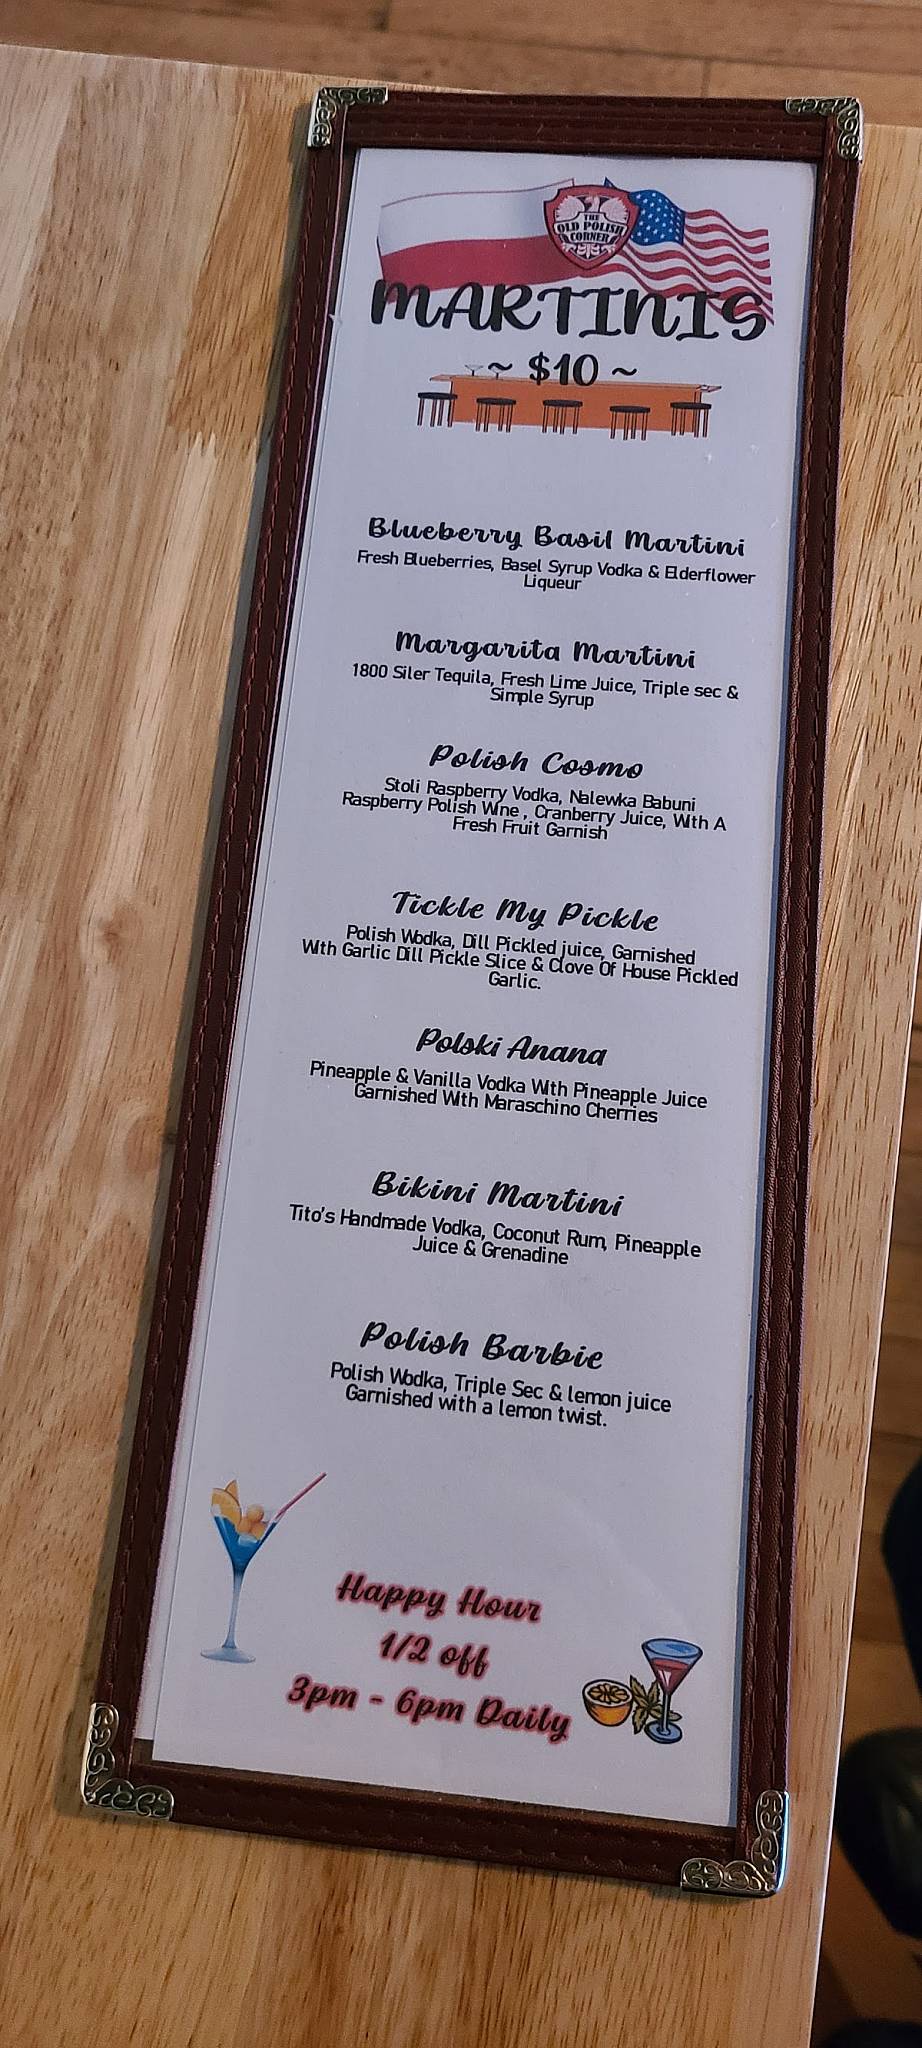 THE
OLD POLISH
CORNER
MARTINIS
~ $10 ~
Blueberry Basil Martini
Fresh Blueberries, Basel Syrup Vodka & Elderflower
Liqueur
Margarita Martini
1800 Siler Tequila, Fresh Lime Juice, Triple sec &
Simple Syrup
Polish Cosmo
Stoli Raspberry Vodka, Nalewka Babuni
Raspberry Polish Wine , Cranberry Juice, With A
Fresh Fruit Garnish
Tickle My Pickle
Polish Vodka, Dill Pickled juice, Garnished
With Garlic Dill Pickle Slice & Clove Of House Pickled
Garlic.
Polski Anana
Pineapple & Vanilla Vodka With Pineapple Juice
Garnished With Maraschino Cherries
Bikini Martini
Tito's Handmade Vodka, Coconut Rum, Pineapple
Juice & Grenadine
Polish Barbie
Polish Vodka, Triple Sec & lemon juice
Garnished with a lemon twist.
Happy Hour
1/2 off
3pm - 6pm Daily